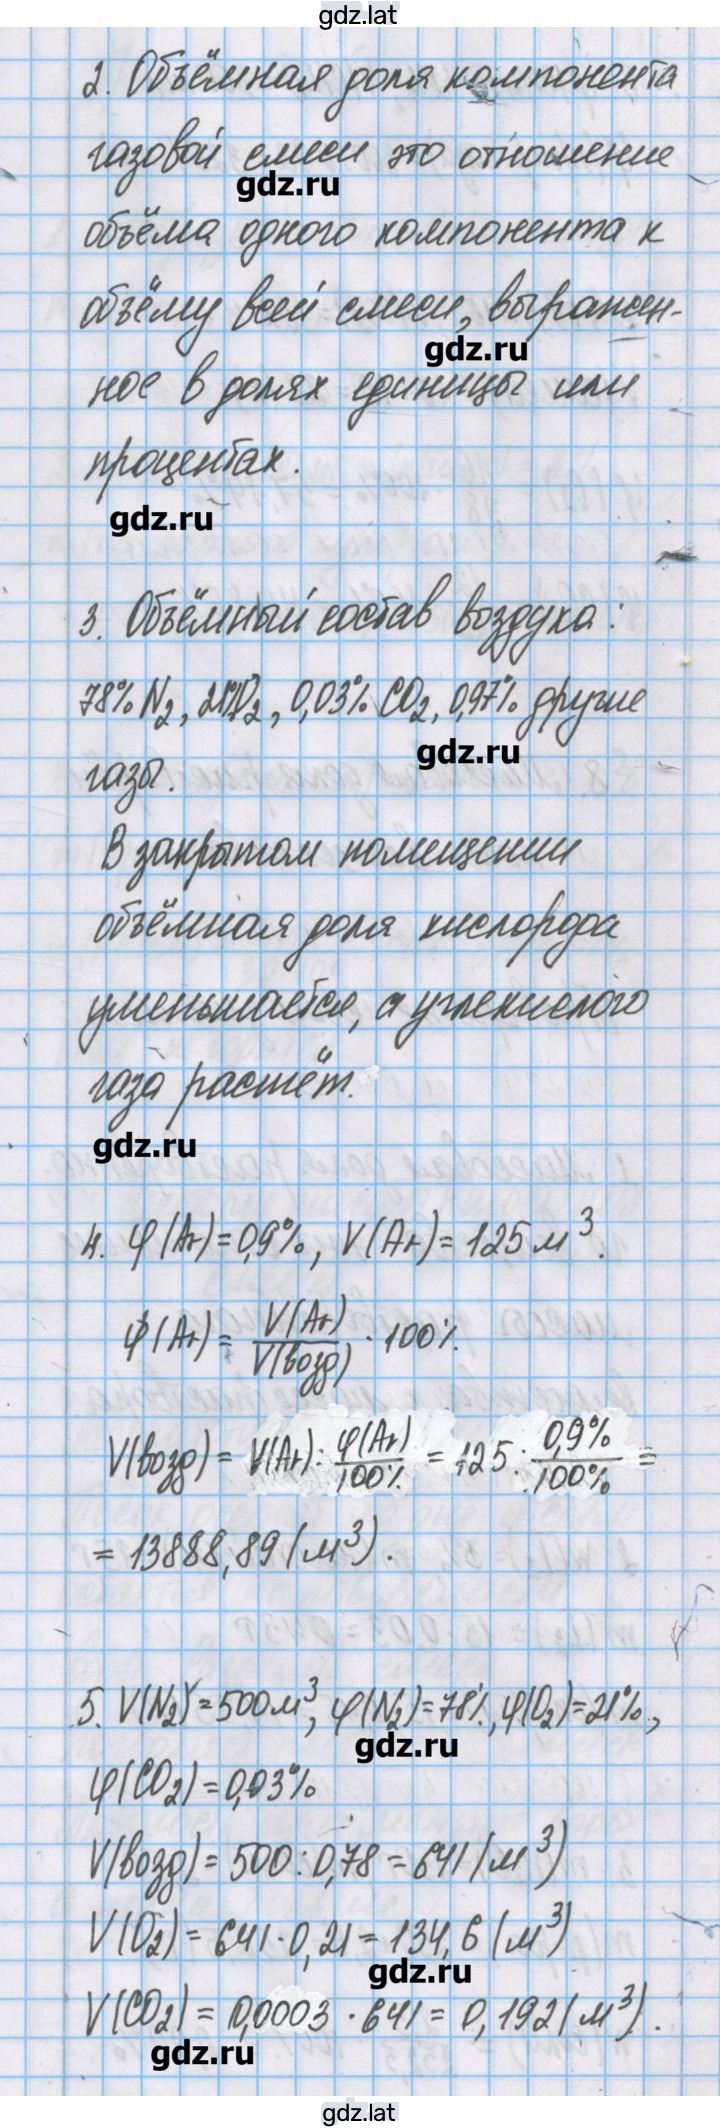 gdz.lat
2. Объёмная доля компонента
газовой смеси это отношение
gdz.ru
объёма одного компонента к
объёму всей смеси, выражен-
gdz.ru
ное в долях единицы или
процентах.
gdz.ru
3. Объёмный состав воздуха:
78% N₂, 21% O₂, 0,03% CO₂, 0,97% другие
gdz.ru
газы.
В закрытом помещении
объёмная доля кислорода
уменьшается, а углекислого
газа растёт.
gdz.ru
4. φ(Ar) = 0,9%, V(Ar) = 125 м³.
φ(Ar) = V(Ar)/V(возд) · 100%.
V(возд) = V(Ar) : φ(Ar)/100% = 125 : 0,9%/100% =
= 13888,89 (м³).
5. V(N₂) = 500 м³, φ(N₂) = 78%, φ(O₂) = 21%,
gdz.ru
φ(CO₂) = 0,03%
V(возд) = 500 : 0,78 = 641 (м³)
V(O₂) = 641 · 0,21 = 134,6 (м³)
gdz.ru
V(CO₂) = 0,0003 · 641 = 0,192 (м³).
gdz.ru
gdz.lat